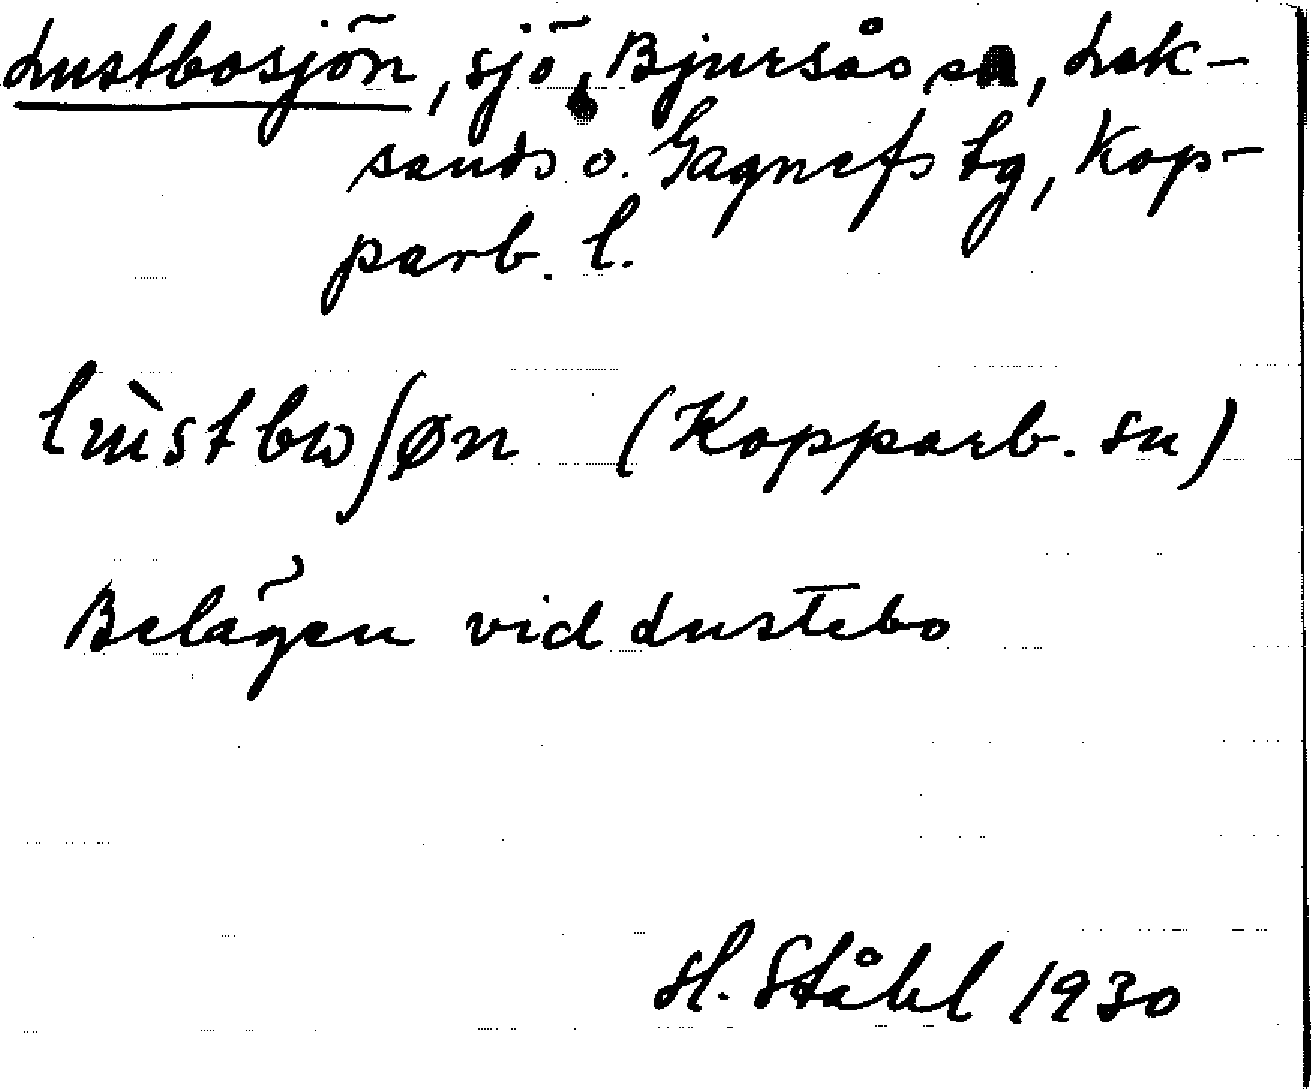 Lustbosjön, sjö, Bjursås sn, Lek-
sands o. Gagnefs tg, Kop-
parb. l.
lùstbωʃøn (Kopparb. sn)
Belägen vid Lustebo
H. Ståhl 1930